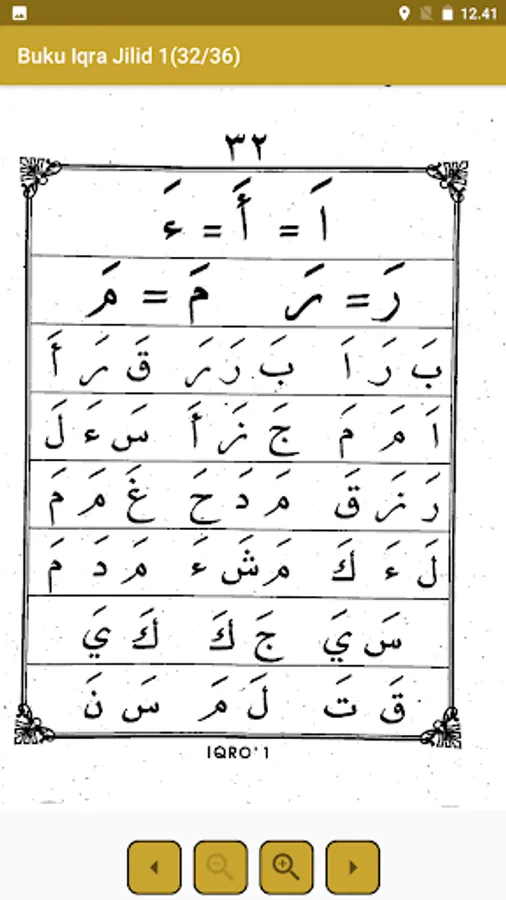 12.41
Buku Iqra Jilid 1(32/36)
٣٢
اَ = أَ = ءَ
رَ = رَ مَ = مَ
بَ رَ اَ بَ رَ رَ قَ رَ أَ
اَ مَ مَ جَ زَ أَ سَ ءَ لَ
رَ زَ قَ مَ دَ حَ غَ مَ مَ
لَ ءَ كَ مَ شَ ءَ مَ دَ مَ
سَ يَ جَ كَ كَ يَ
قَ تَ لَ مَ سَ نَ
IQRO' 1